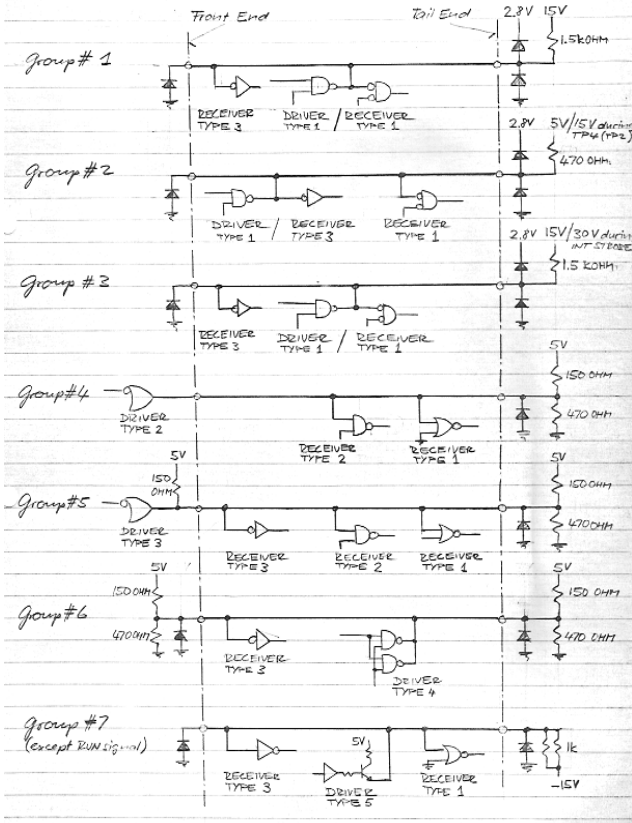 Front End
Tail End
2.8V 15V
1.5kOHM
Group # 1
RECEIVER TYPE 3
DRIVER TYPE 1 / RECEIVER TYPE 1
2.8V 5V/15V during TP4 (TP2)
470 OHM.
Group #2
DRIVER TYPE 1 / RECEIVER TYPE 3
RECEIVER TYPE 1
2.8V 15V/30V during INT STROBE
1.5 KOHM.
Group #3
RECEIVER TYPE 3
DRIVER TYPE 1 / RECEIVER TYPE 1
5V
150 OHM
470 OHM
Group #4
DRIVER TYPE 2
RECEIVER TYPE 2
RECEIVER TYPE 1
5V
150 OHM
5V
150 OHM
470 OHM
Group #5
DRIVER TYPE 3
RECEIVER TYPE 3
RECEIVER TYPE 2
RECEIVER TYPE 1
5V
150 OHM
470 OHM
5V
150 OHM
470 OHM
Group #6
RECEIVER TYPE 3
DRIVER TYPE 4
Group #7
(except RUN signal)
5V
1k
-15V
RECEIVER TYPE 3
DRIVER TYPE 5
RECEIVER TYPE 1